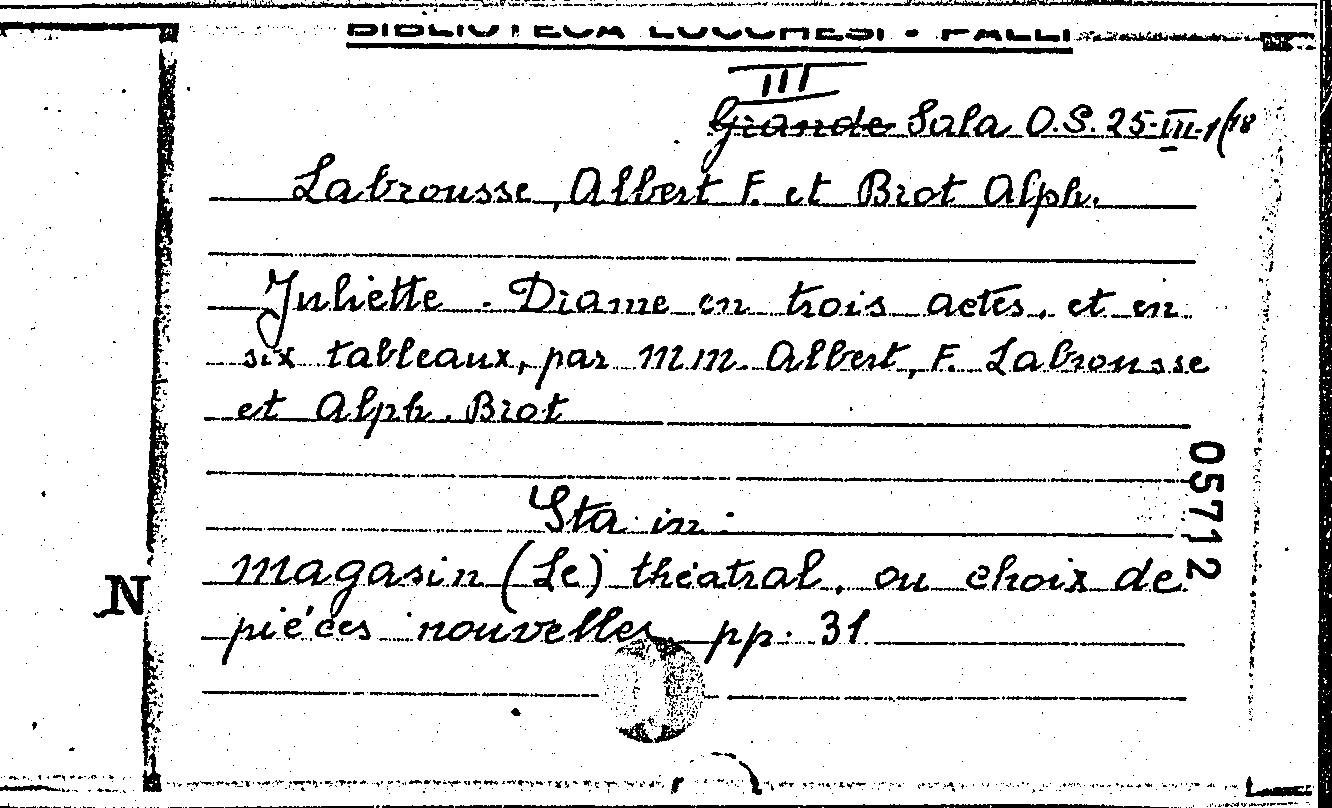 BIBLIOTECA LUCCHESI - PALLI
III
Grande Sala O.S. 25-III-1/18
Labrousse, Albert F. et Brot Alph.
Juliette - Drame en trois actes, et en
six tableaux, par MM. Albert, F. Labrousse
et Alph. Brot
05712
Sta in:
Magasin (Le) théatral, ou choix de
piéces nouvelles pp. 31
N